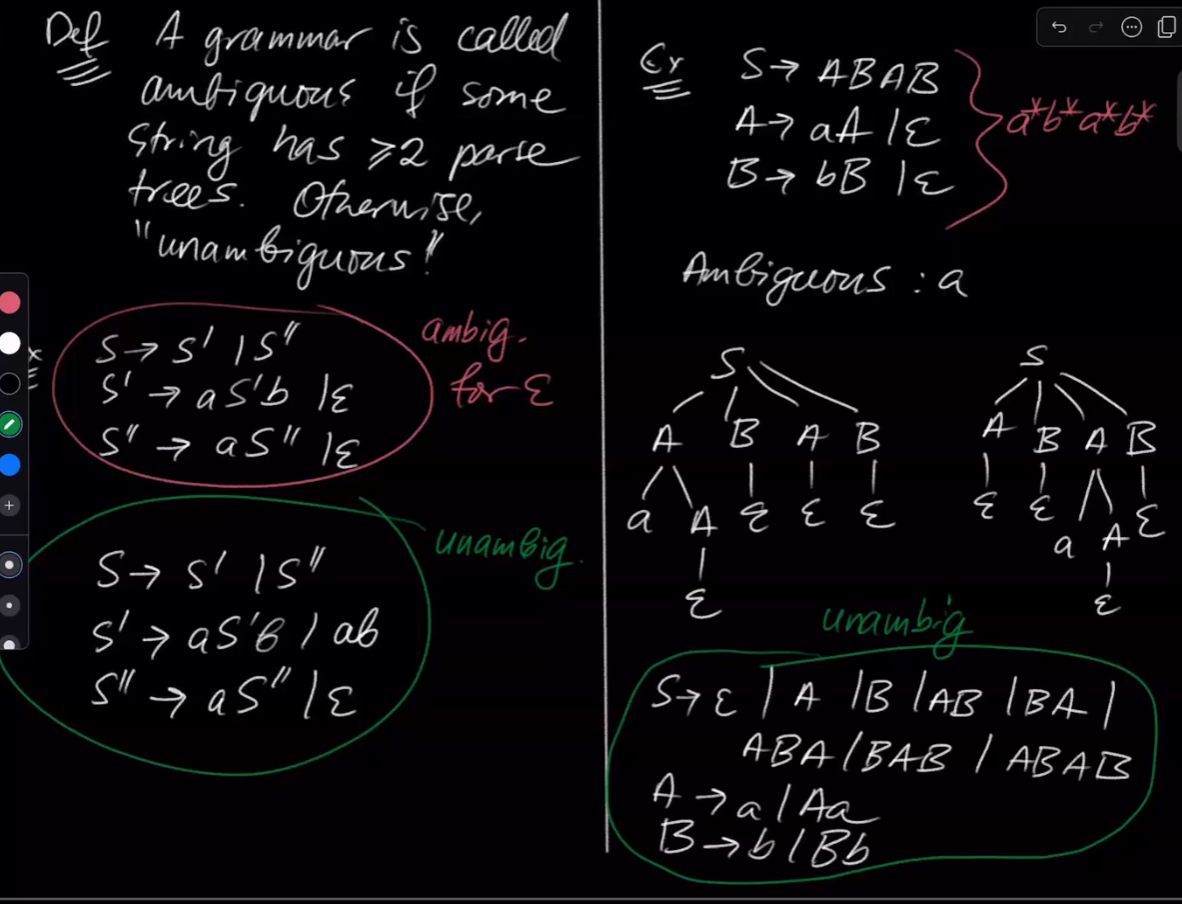 Def A grammar is called
ambiguous if some
string has ≥2 parse
trees. Otherwise,
"unambiguous!"
S → S' | S''
S' → aS'b | ε
S'' → aS'' | ε
ambig.
for ε
S → S' | S''
S' → aS'b | ab
S'' → aS'' | ε
unambig.
Ex S → ABAB
A → aA | ε
B → bB | ε
a*b*a*b*
Ambiguous : a
S
A B A B
a A ε ε ε
ε
S
A B A B
ε ε a A ε
ε
unambig
S → ε | A | B | AB | BA |
ABA | BAB | ABAB
A → a | Aa
B → b | Bb